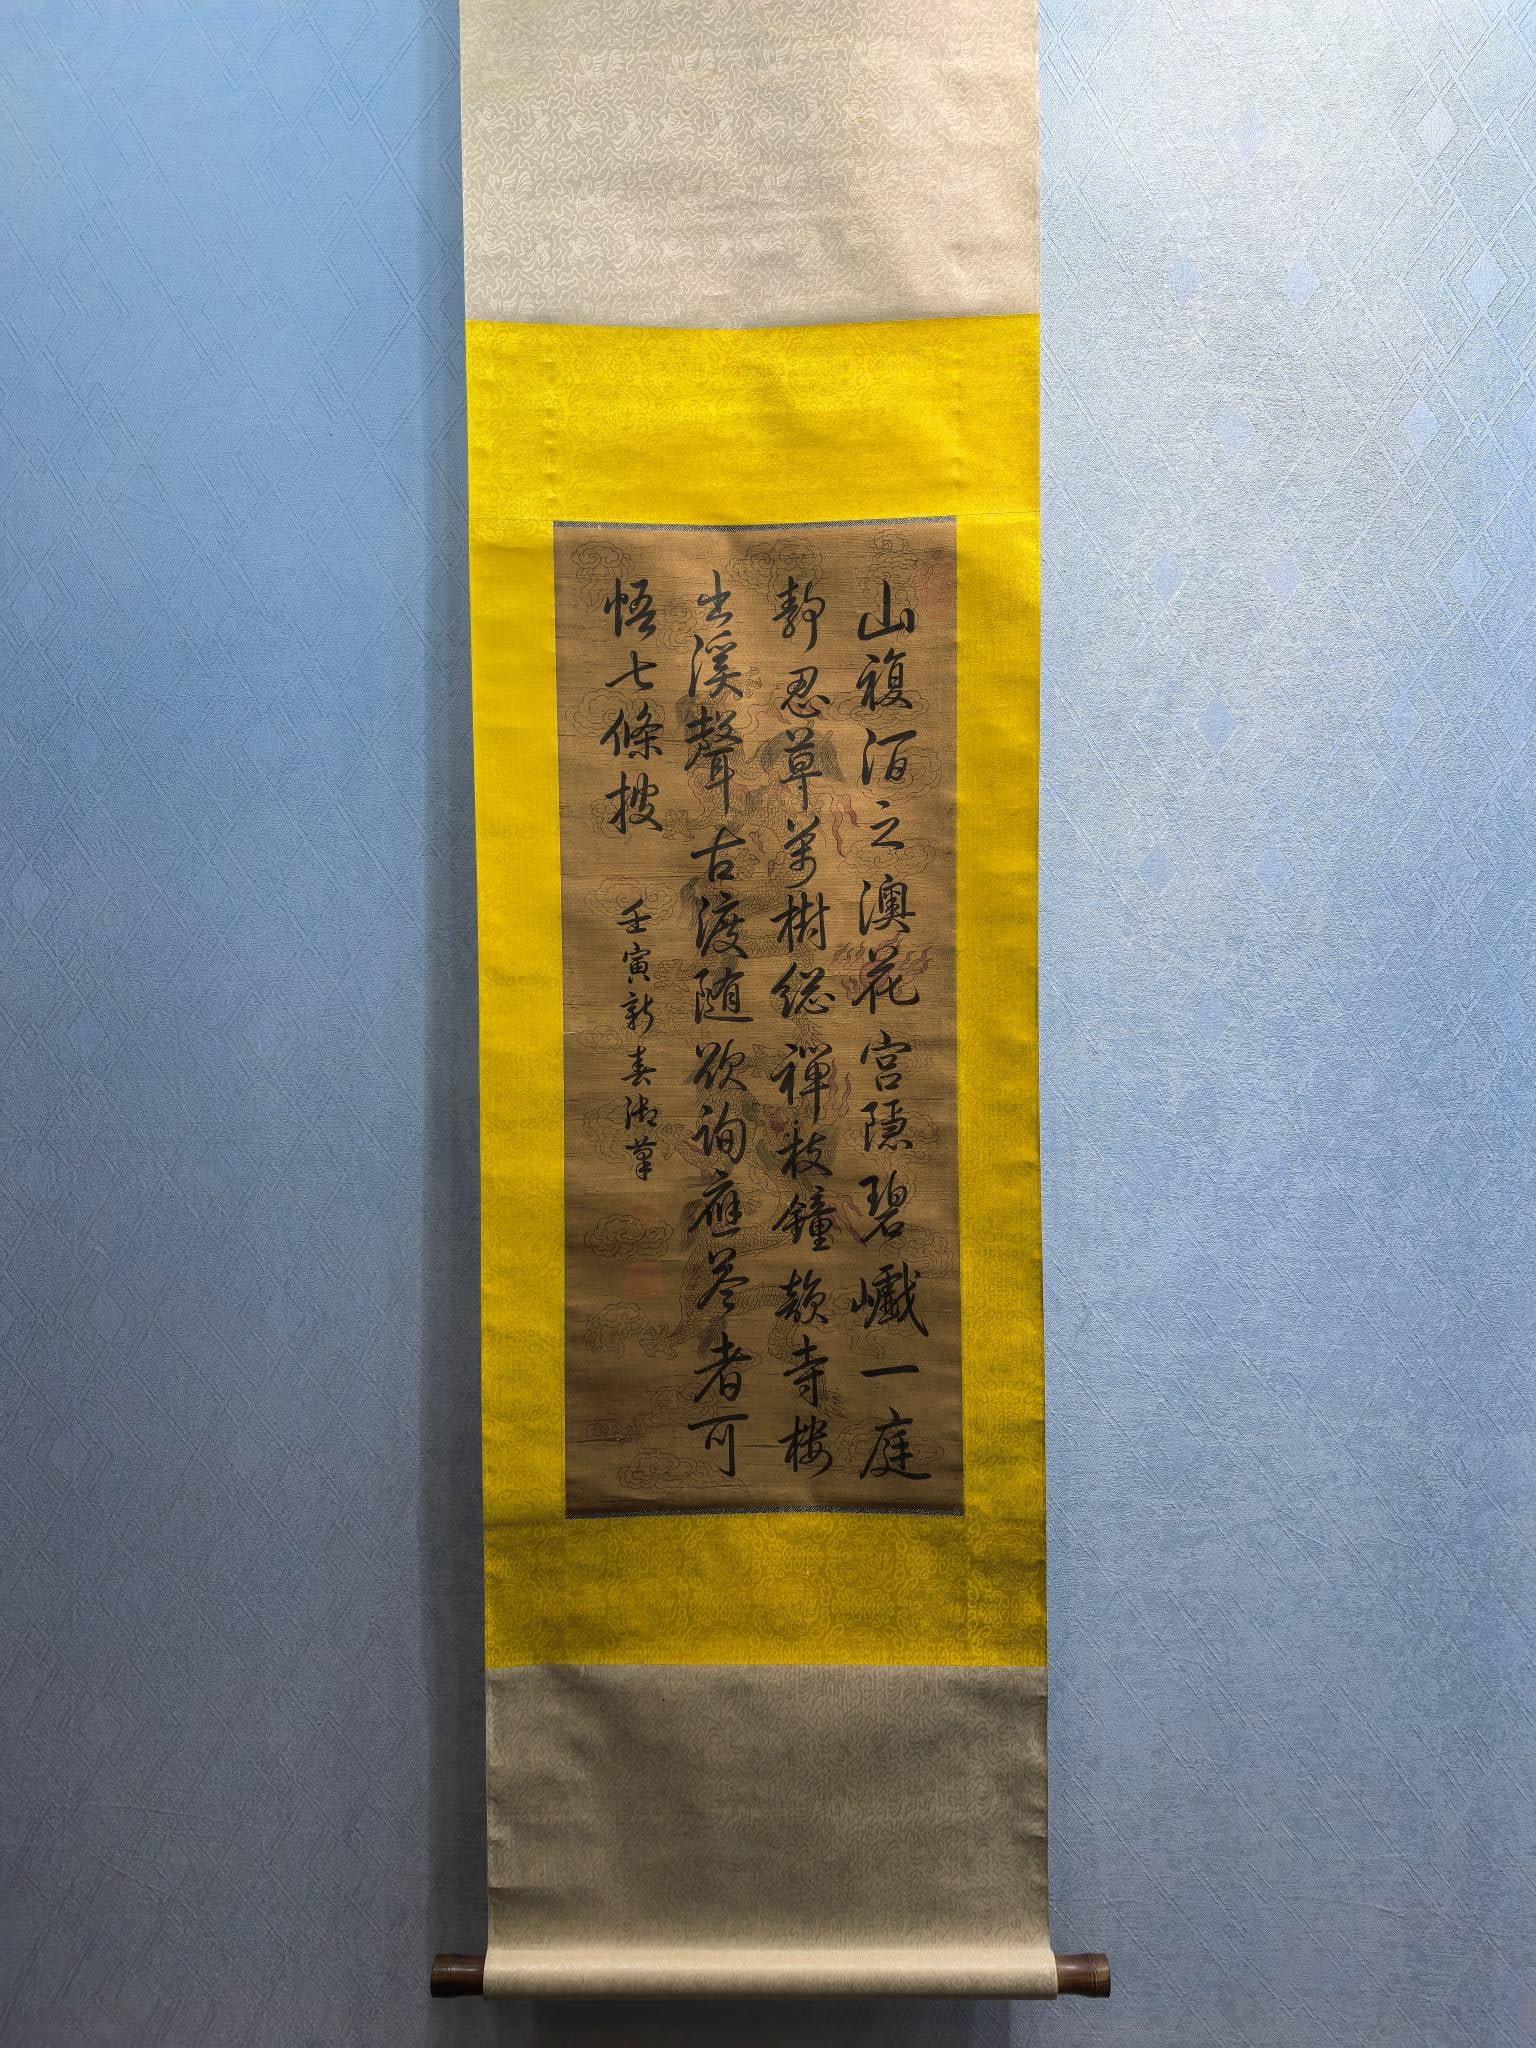 山複之澳花宮隱碧巇一庭
靜忍草萬樹總禪枝鐘韻寺樓
出溪聲古渡随欲詢應荅者可
悟七條披
壬寅新春御筆